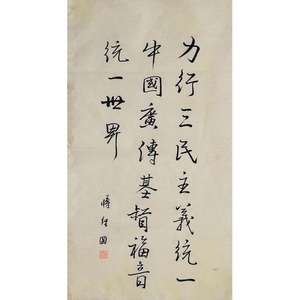 力行三民主義統一
中國廣傳基督福音
統一世界
蔣經國